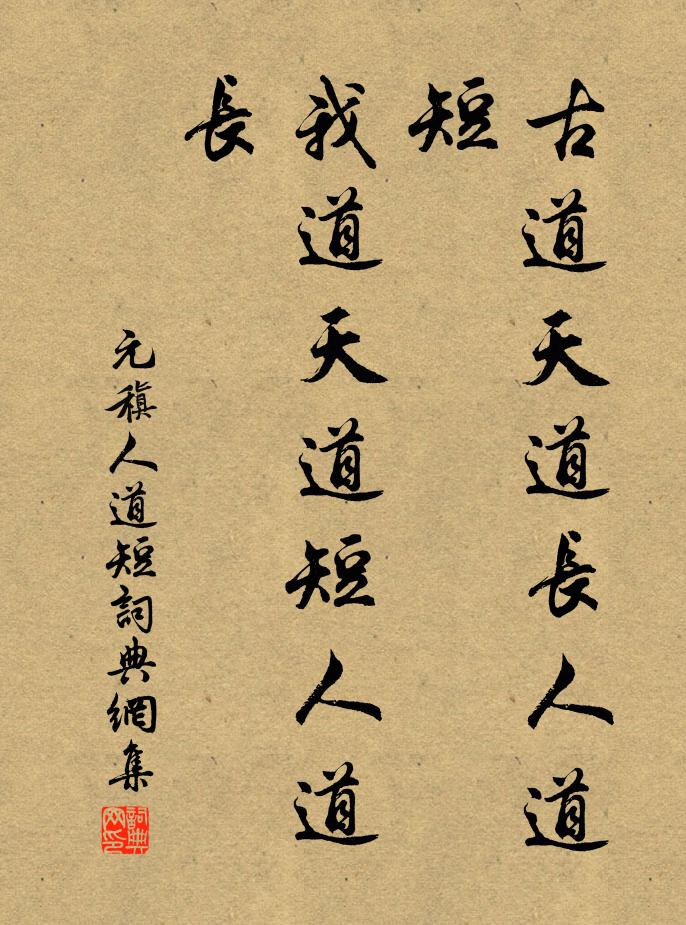 古道天道長人道
短
我道天道短人道
長
元稹人道短詞典網集
詞典网印